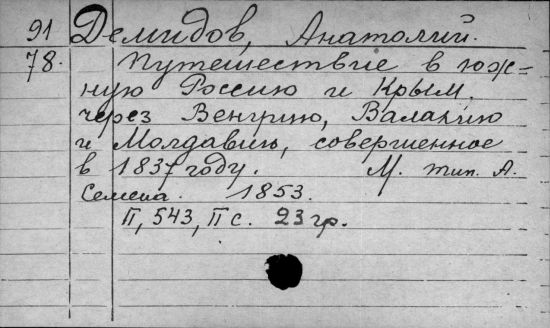 91 Демидов, Анатолий.
78. Путешествие в юж=
ную Россию и Крым,
через Венгрию, Валахию
и Молдавию, совершенное
в 1837 году. М. тип. А.
Семена. 1853.
II, 543, II с. 23 гр.